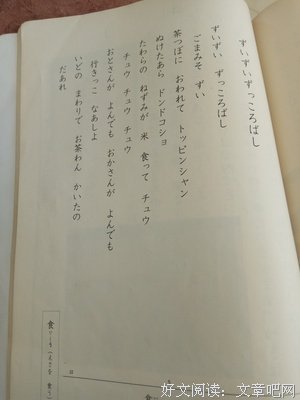 ずいずいずっころばし
ずいずい ずっころばし
ごまみそ ずい
茶つぼに おわれて トッピンシャン
ぬけたあら ドンドコショ
たわらの ねずみが 米 食って チュウ
チュウ チュウ チュウ
おとさんが よんでも おかさんが よんでも
行きっこ なあしよ
いどの まわりで お茶わん かいたの
だあれ
好文阅读:文章吧网